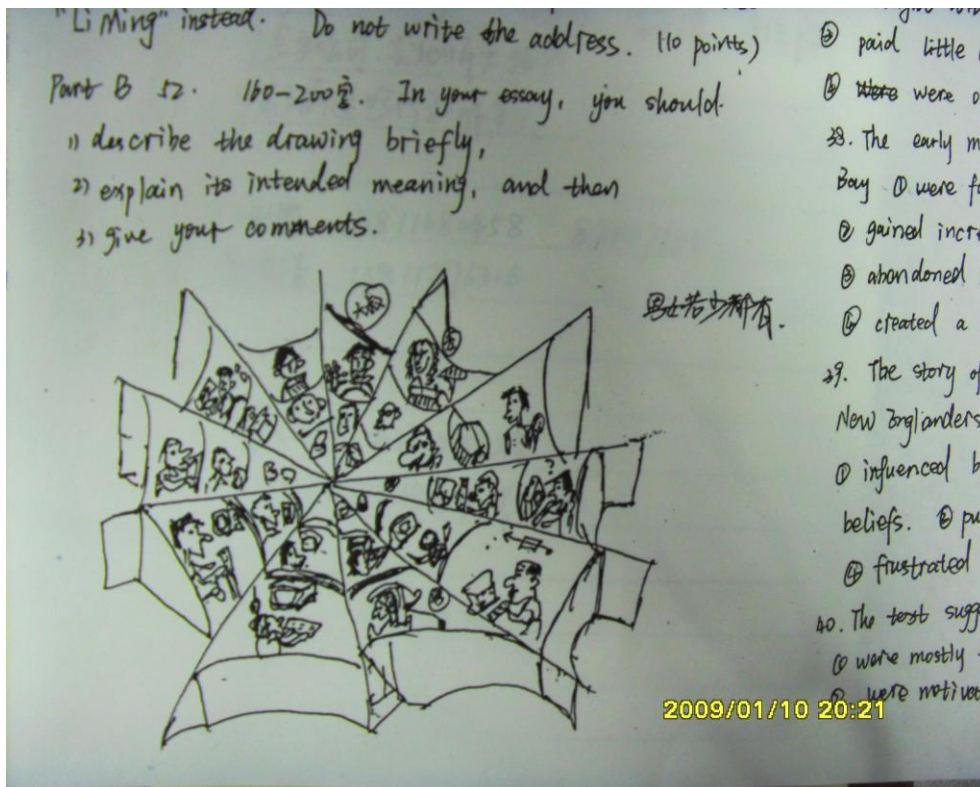 "Li Ming" instead. Do not write the address. (10 points)
Part B 52. 160-200字. In your essay, you should.
1) describe the drawing briefly,
2) explain its intended meaning, and then
3) give your comments.
男女老少都有.
② paid little
③ were
38. The early
Bay ① were
② gained
③ abandoned
④ created a
39. The story
New Englanders
① influenced
beliefs. ②
④ frustrated
40. The text
① were mostly
② were
2009/01/10 20:21